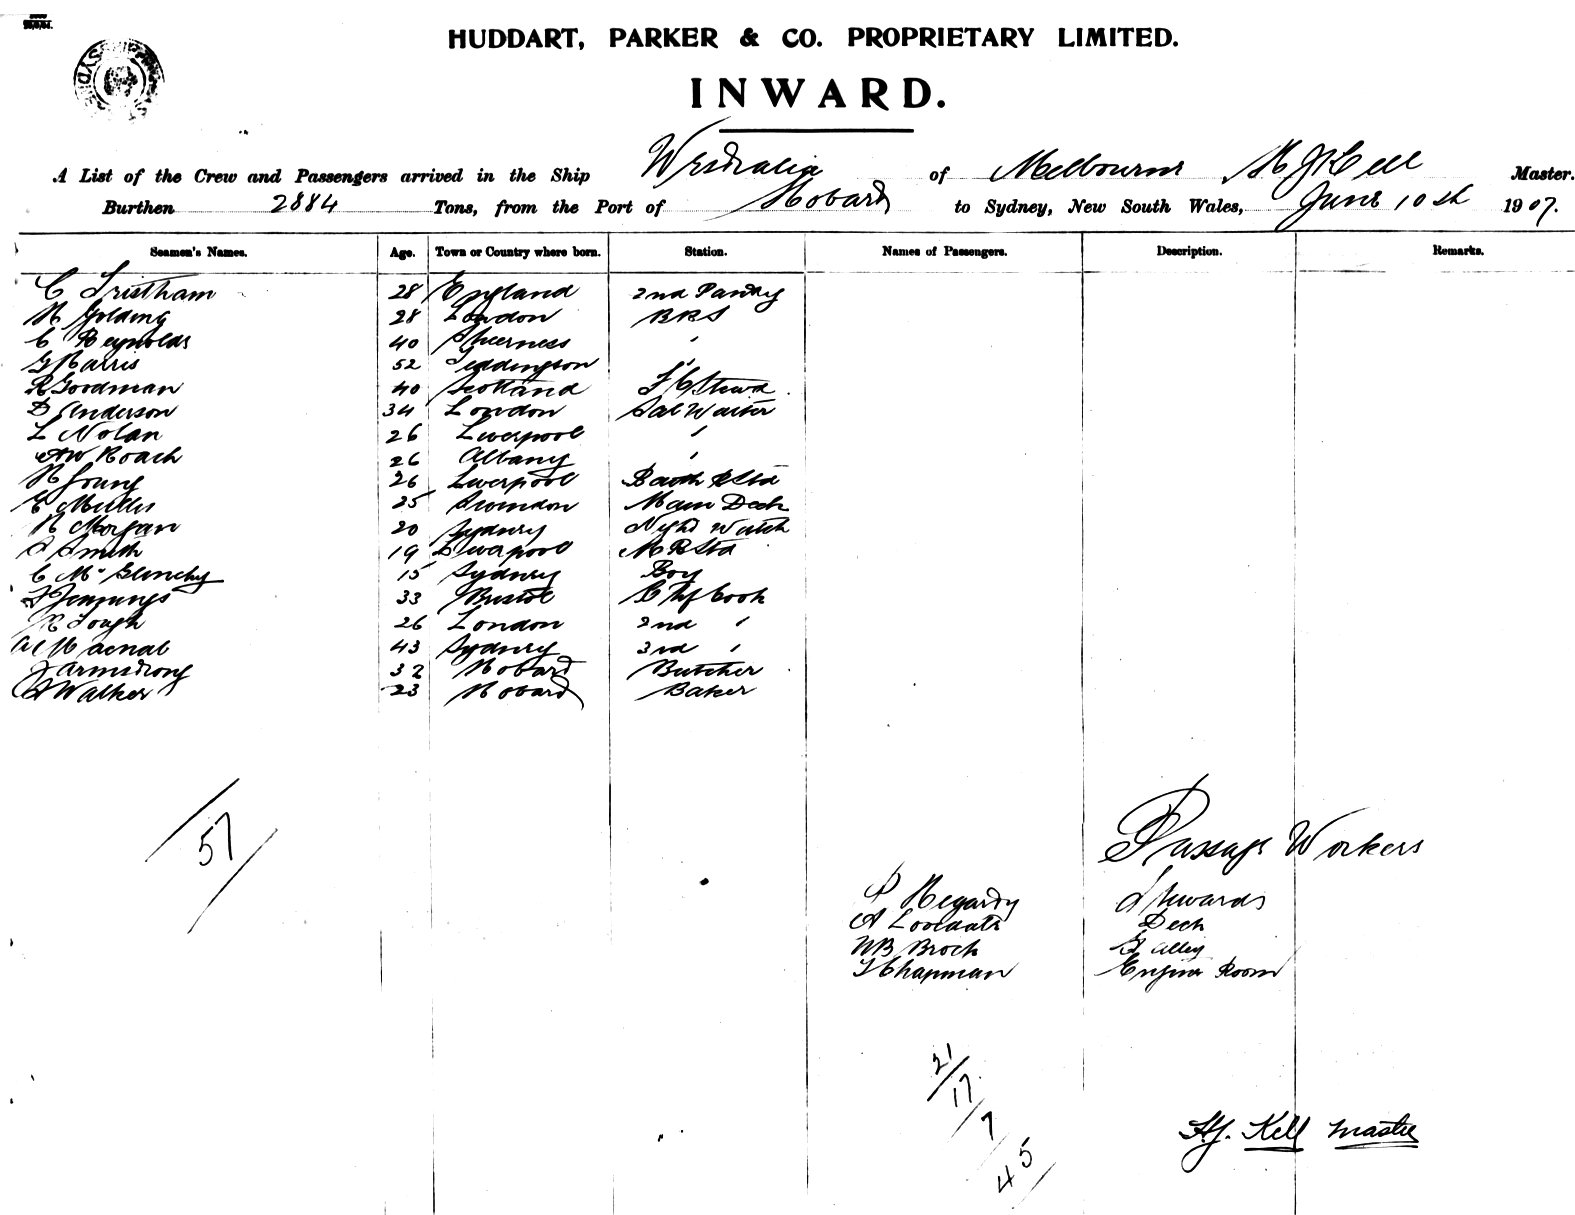 HUDDART, PARKER & CO. PROPRIETARY LIMITED.
INWARD.
A List of the Crew and Passengers arrived in the Ship Westralia of Melbourne H J Kell Master.
Burthen 2884 Tons, from the Port of Hobart to Sydney, New South Wales, June 10th 1907.
Seamen's Names. Age. Town or Country where born. Station. Names of Passengers. Description. Remarks.
C Tristham 28 England 2nd Pantry
H Golding 28 London BRS
C Reynolds 40 Sheerness "
G Harris 52 Teddington "
R Goodman 40 Scotland F C Stewd
D Anderson 34 London Sal Waiter
L Nolan 26 Liverpool "
A W Roach 26 Albany "
H Young 26 Liverpool Bath R Std
E Mills 25 Swindon Main Deck
H Morgan 20 Sydney Night Watch
S Smith 19 Liverpool M R Std
C McGlinchy 15 Sydney Boy
F Jennings 33 Bristol Chf Cook
R Tough 26 London 2nd "
43 Sydney 3rd "
J Armstrong 32 Hobart Butcher
A Walker 23 Hobart Baker
57
Passage Workers
P Hegarty Stewards
A Deck
W B Brock Galley
T Chapman Engine Room
21/17/7
45
H.J. Kell Master